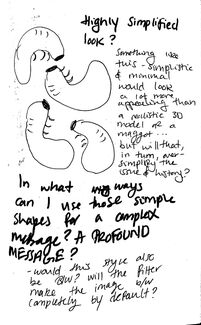 Highly Simplified
look?
Something like
this - simplistic
& minimal
would look
a lot more
appealing than
a realistic 3D
model of a
maggot...
but will that,
in turn, over-
simplify the
issue of history?
In what ways
can I use those simple
shapes for a complex
message? A PROFOUND
MESSAGE?
- would this style also
be B/W? will the filter
make the image b/w
completely by default?